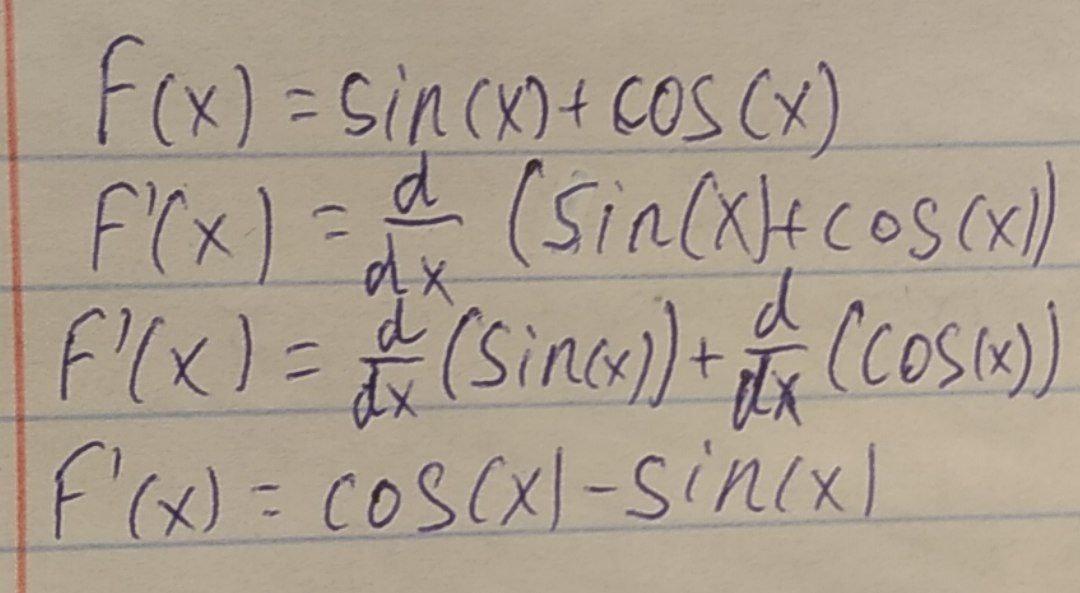 F(x) = sin(x) + cos(x)
F'(x) = d/dx (sin(x) + cos(x))
F'(x) = d/dx (sin(x)) + d/dx (cos(x))
F'(x) = cos(x) - sin(x)